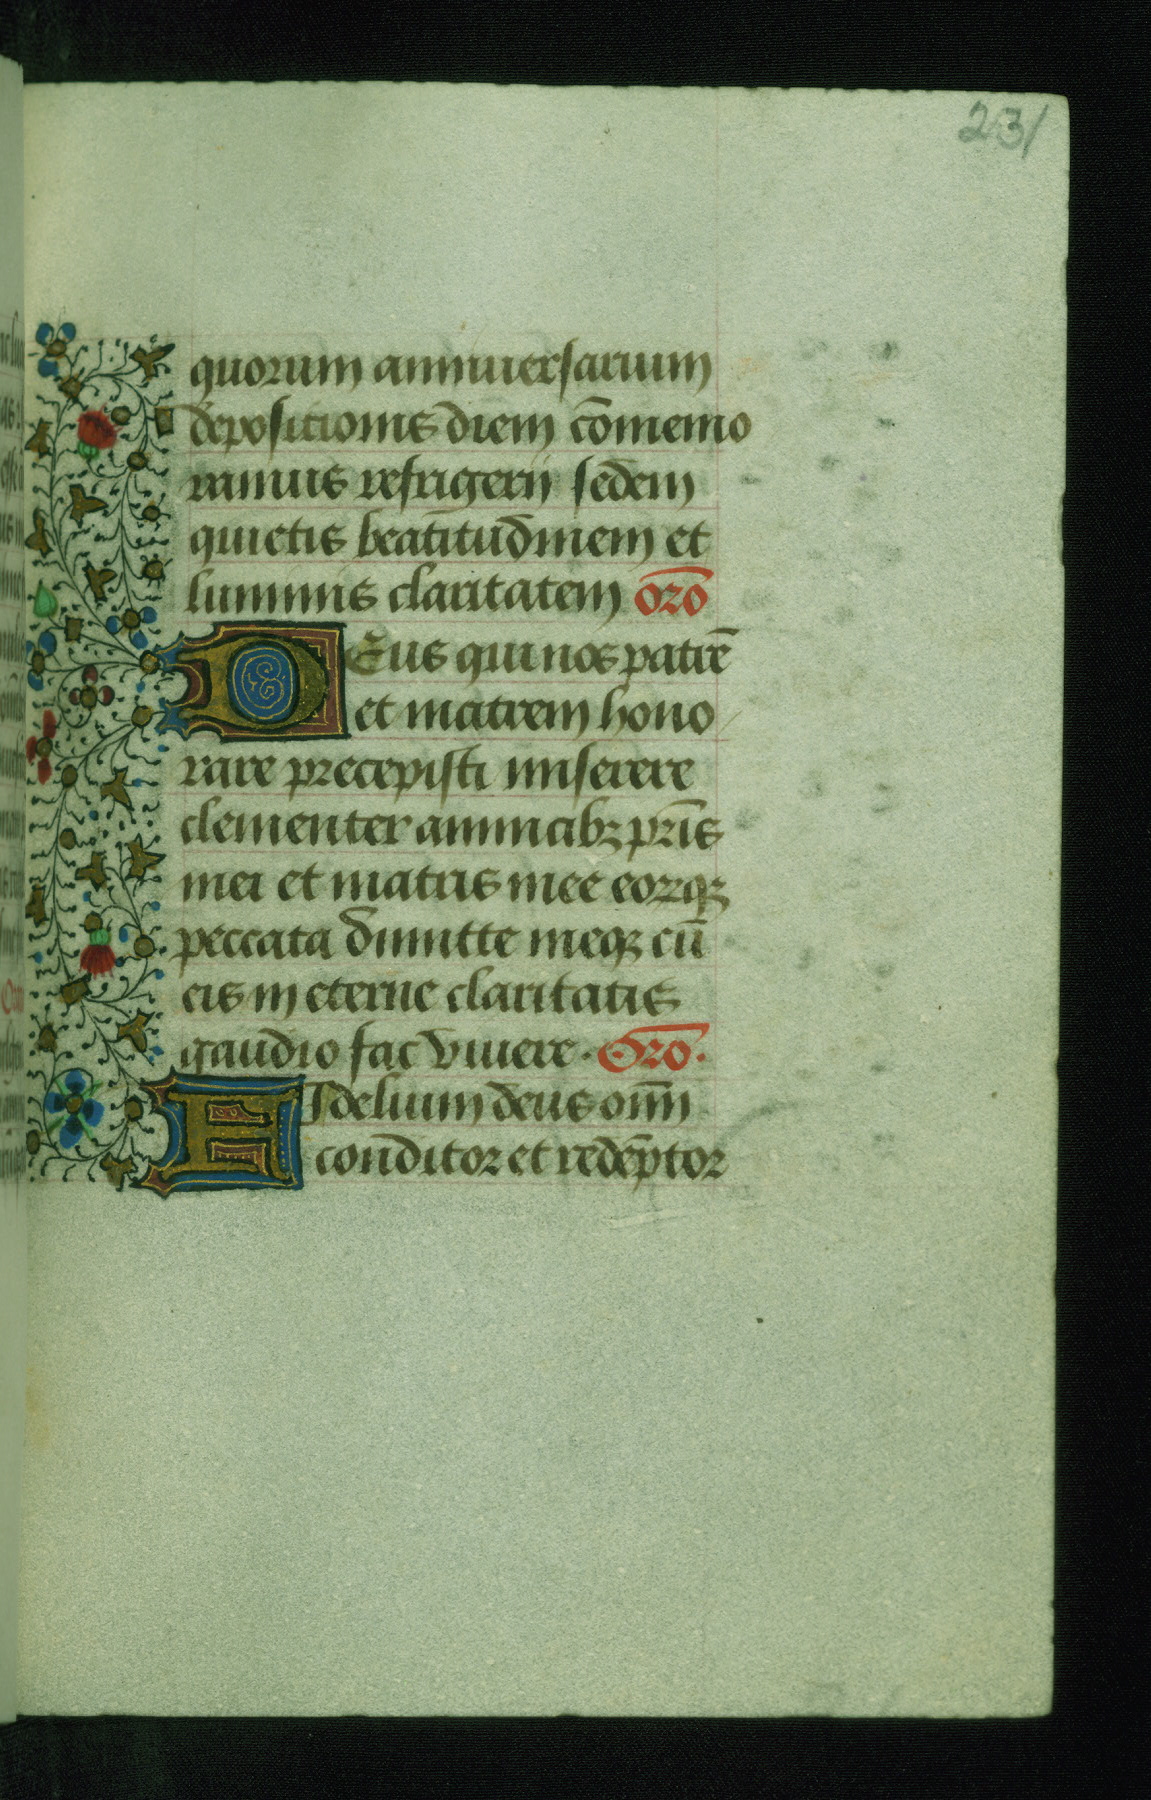 231
quorum anniuersarium
depositionis diem cōmemo
ramus refrigerij sedem
quietis beatitudinem et
luminis claritatem oro̅
Deus qui nos patrē
et matrem hono
rare precepisti miserere
clementer animabꝫ pr̅is
mei et matris mee eorꝗꝫ
peccata dimitte meqꝫ cū
eis in eterne claritatis
gaudio fac viuere. Oro̅.
Fidelium deus om̅i
conditor et redēptor